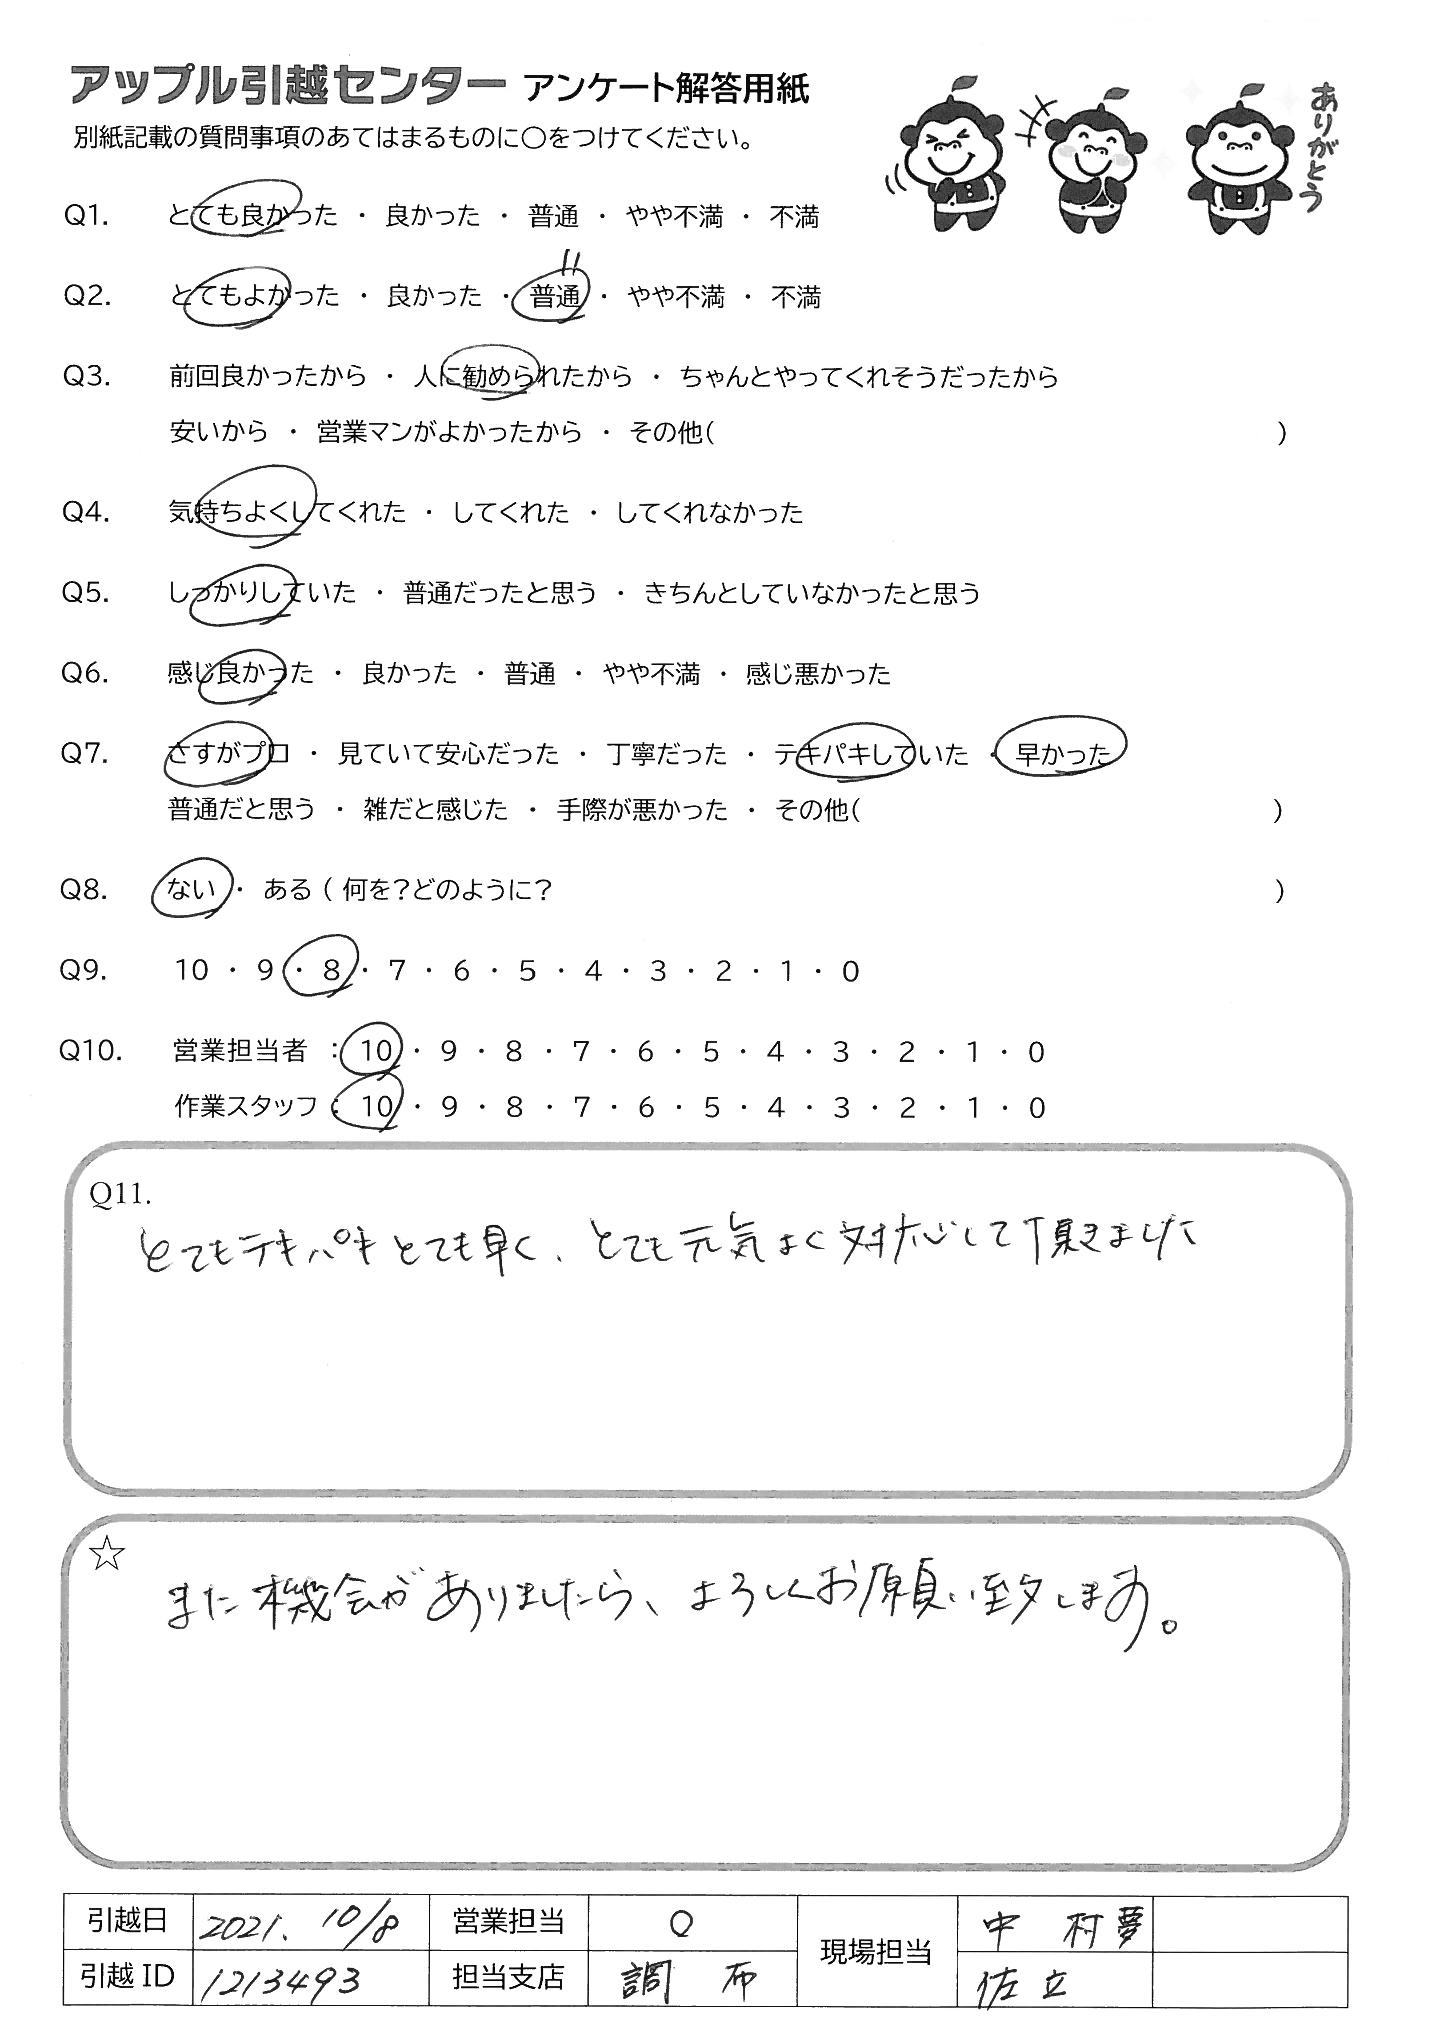 アップル引越センター アンケート解答用紙
別紙記載の質問事項のあてはまるものに○をつけてください。
ありがとう
Q1. とても良かった ・ 良かった ・ 普通 ・ やや不満 ・ 不満
Q2. とてもよかった ・ 良かった ・ 普通 ・ やや不満 ・ 不満
Q3. 前回良かったから ・ 人に勧められたから ・ ちゃんとやってくれそうだったから
安いから ・ 営業マンがよかったから ・ その他( )
Q4. 気持ちよくしてくれた ・ してくれた ・ してくれなかった
Q5. しっかりしていた ・ 普通だったと思う ・ きちんとしていなかったと思う
Q6. 感じ良かった ・ 良かった ・ 普通 ・ やや不満 ・ 感じ悪かった
Q7. さすがプロ ・ 見ていて安心だった ・ 丁寧だった ・ テキパキしていた ・ 早かった
普通だと思う ・ 雑だと感じた ・ 手際が悪かった ・ その他( )
Q8. ない ・ ある ( 何を?どのように? )
Q9. 10 ・ 9 ・ 8 ・ 7 ・ 6 ・ 5 ・ 4 ・ 3 ・ 2 ・ 1 ・ 0
Q10. 営業担当者 : 10 ・ 9 ・ 8 ・ 7 ・ 6 ・ 5 ・ 4 ・ 3 ・ 2 ・ 1 ・ 0
作業スタッフ : 10 ・ 9 ・ 8 ・ 7 ・ 6 ・ 5 ・ 4 ・ 3 ・ 2 ・ 1 ・ 0
Q11.
とてもテキパキとても早く、とても元気よく対応して頂きました
☆
また機会がありましたら、よろしくお願い致します。
引越日 2021. 10/8 営業担当 Q 現場担当 中村夢
引越ID 1213493 担当支店 調布 佐立